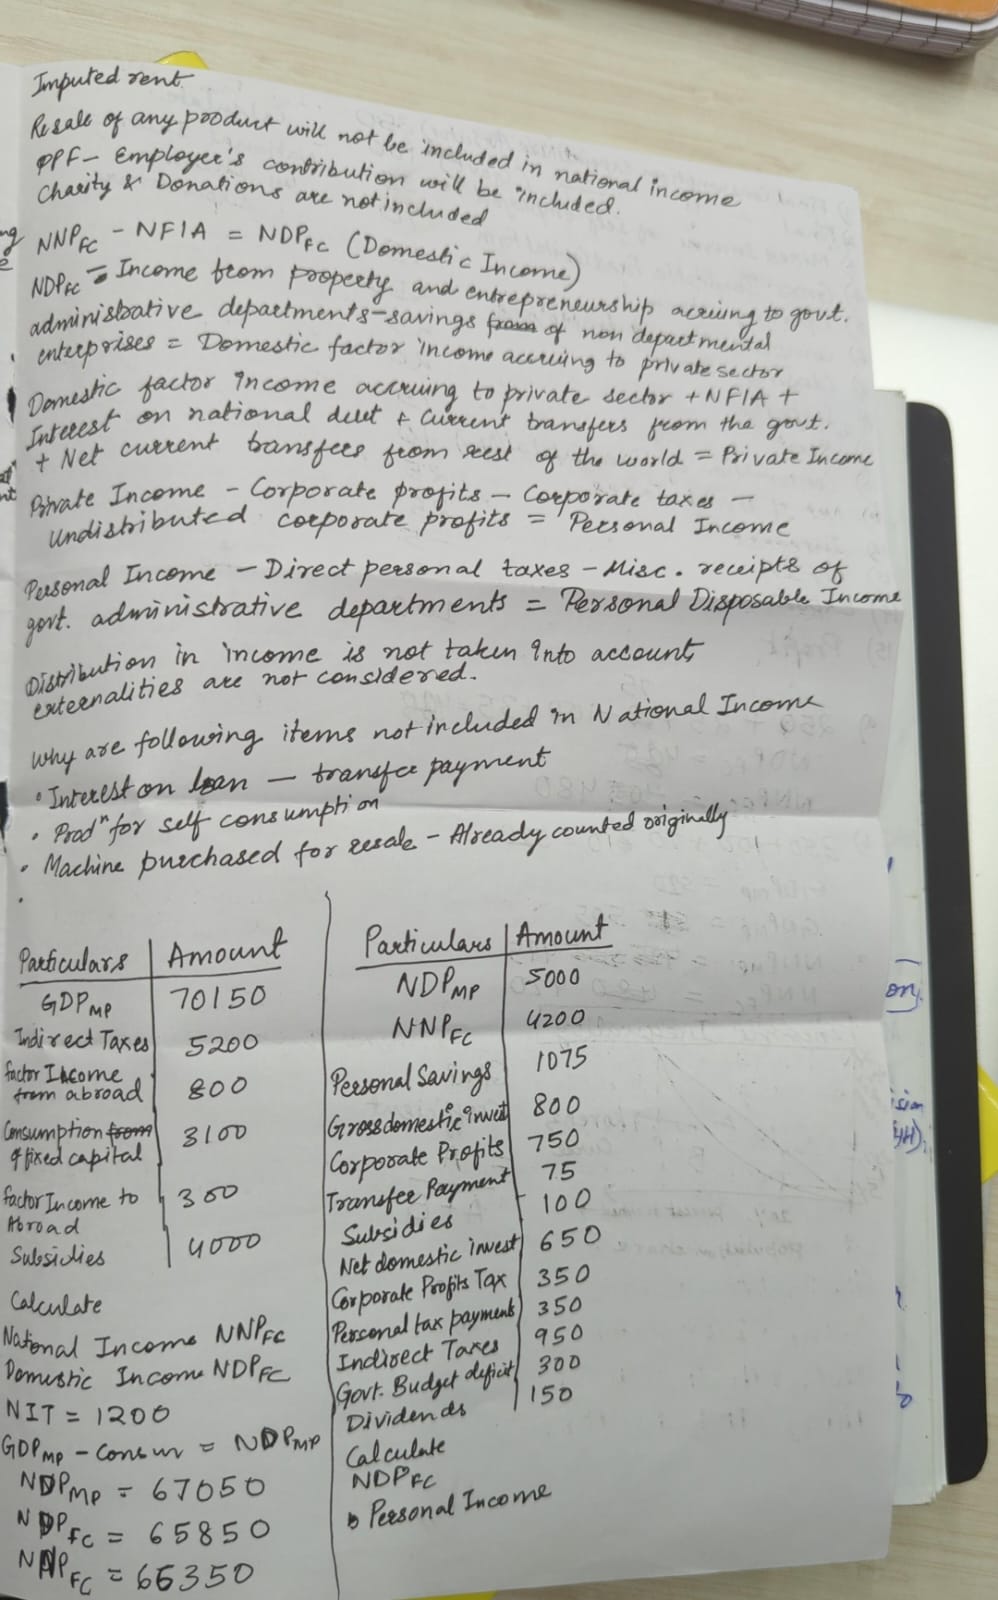 Imputed rent
Resale of any product will not be included in national income
PPF - Employer's contribution will be included.
Charity & Donations are not included
NNP FC - NFIA = NDP FC (Domestic Income)
NDP FC - Income from property and entrepreneurship accruing to govt.
administrative departments - savings from of non departmental
enterprises = Domestic factor income accruing to private sector
Domestic factor income accruing to private sector + NFIA +
Interest on national debt + Current transfers from the govt.
+ Net current transfers from rest of the world = Private Income
Private Income - Corporate profits - Corporate taxes -
Undistributed corporate profits = Personal Income
Personal Income - Direct personal taxes - Misc. receipts of
govt. administrative departments = Personal Disposable Income
Distribution in income is not taken into account
externalities are not considered.
Why are following items not included in National Income
• Interest on loan - transfer payment
• Prodn for self consumption
• Machine purchased for resale - Already counted originally
Particulars | Amount
GDP MP 70150
Indirect Taxes 5200
Factor Income from abroad 800
Consumption from of fixed capital 3100
Factor Income to Abroad 300
Subsidies 4000
Calculate
National Income NNP FC
Domestic Income NDP FC
NIT = 1200
GDP MP - Consum = NDP MP
NDP MP = 67050
NDP FC = 65850
NNP FC = 66350
Particulars | Amount
NDP MP 5000
NNP FC 4200
Personal Savings 1075
Gross domestic invest 800
Corporate Profits 750
Transfer Payment 75
Subsidies 100
Net domestic invest 650
Corporate Profits Tax 350
Personal tax payment 350
Indirect Taxes 950
Govt. Budget deficit 300
Dividends 150
Calculate
NDP FC
Personal Income